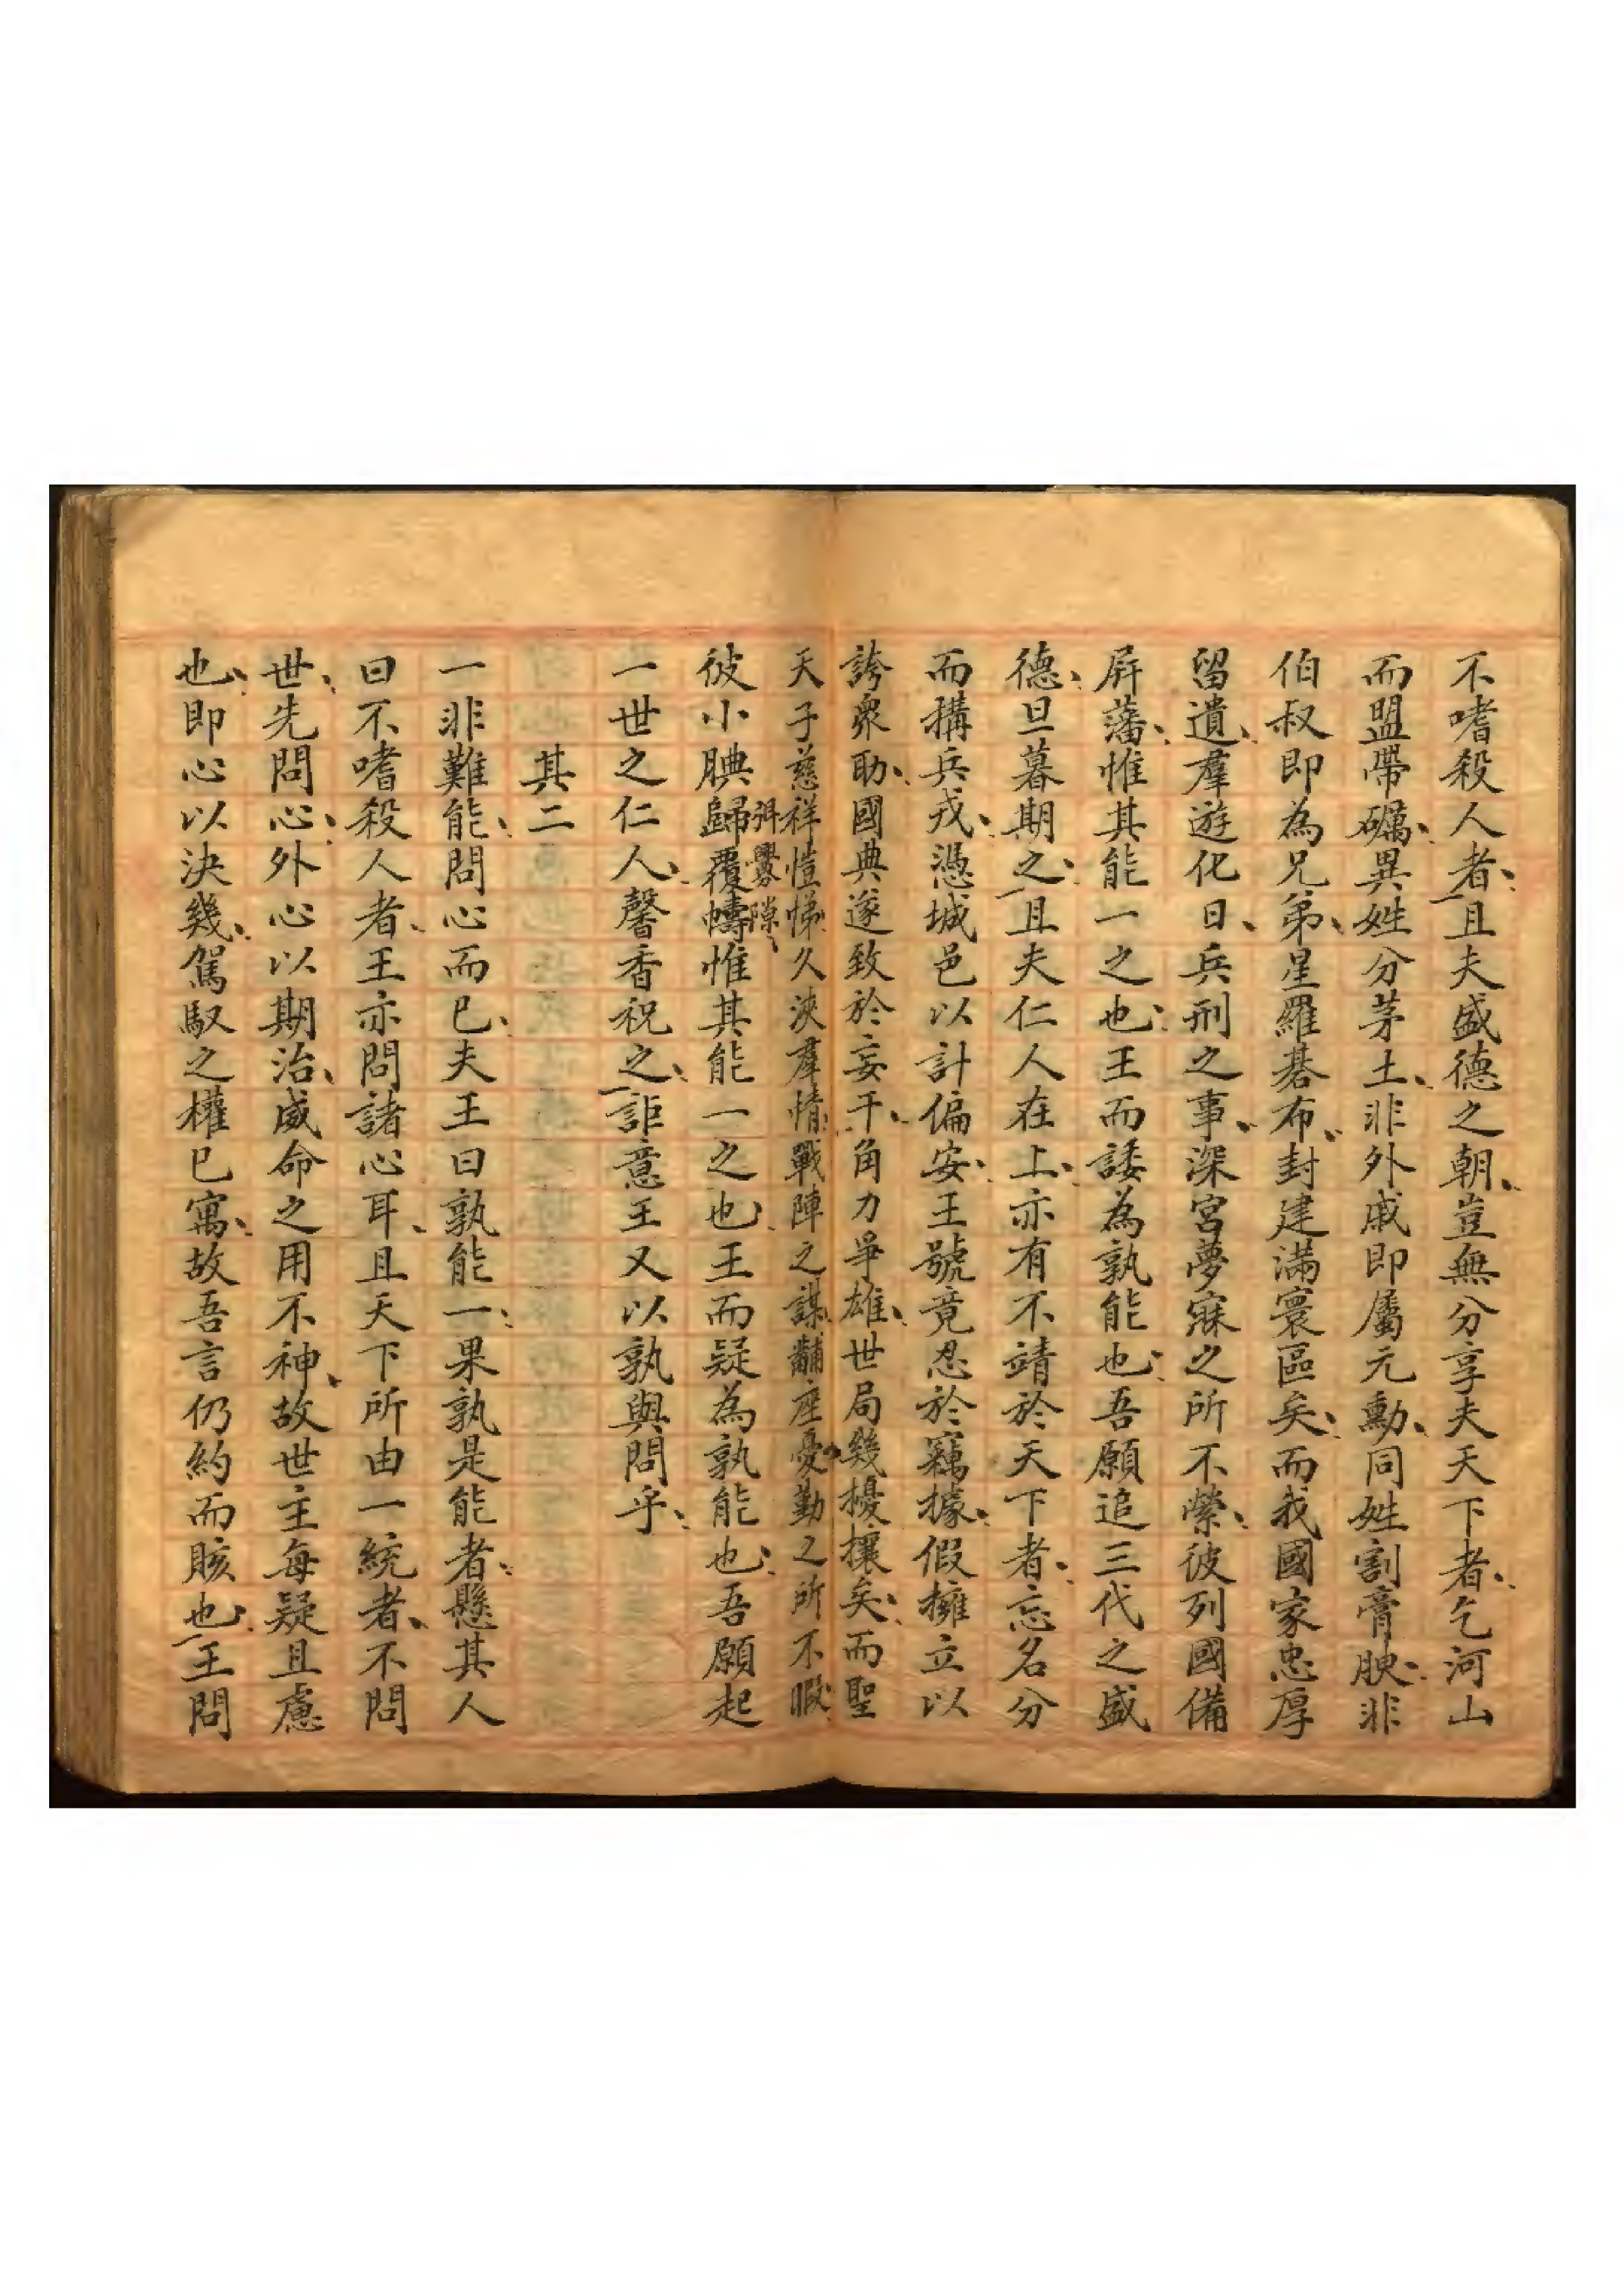 不嗜殺人者、且夫盛德之朝、豈無分享夫天下者、乞河山
而盟帶礪、異姓分茅土、非外戚即屬元勳、同姓割膏腴、非
伯叔即為兄弟、星羅碁布、封建滿寰區矣、而我國家忠厚
留遺、羣遊化日、兵刑之事、深宮夢寐之所不縈、彼列國備
屏藩、惟其能一之也、王而諉為孰能也、吾願追三代之盛
德、旦暮期之、且夫仁人在上、亦有不靖於天下者、忘名分
而搆兵戎、憑城邑以計偏安、王號竟忍於竊據、假擁立以
誇衆助、國典遂致於妄干、角力爭雄、世局幾擾攘矣、而聖
天子慈祥愷悌、久浹羣情、戰陣之謀、黼座憂勤之所不暇、
彼小腆歸覆幬、惟其能一之也、王而疑為孰能也、吾願起
弭釁隙、
一世之仁人、馨香祝之、詎意王又以孰與問乎、
其二
一非難能、問心而已、夫王曰孰能一、果孰是能者、懸其人
曰不嗜殺人者、王亦問諸心耳、且天下所由一統者、不問
世、先問心、外心以期治、威命之用不神、故世主每疑且慮
也、即心以決幾、駕馭之權已寓、故吾言仍約而賅也、王問